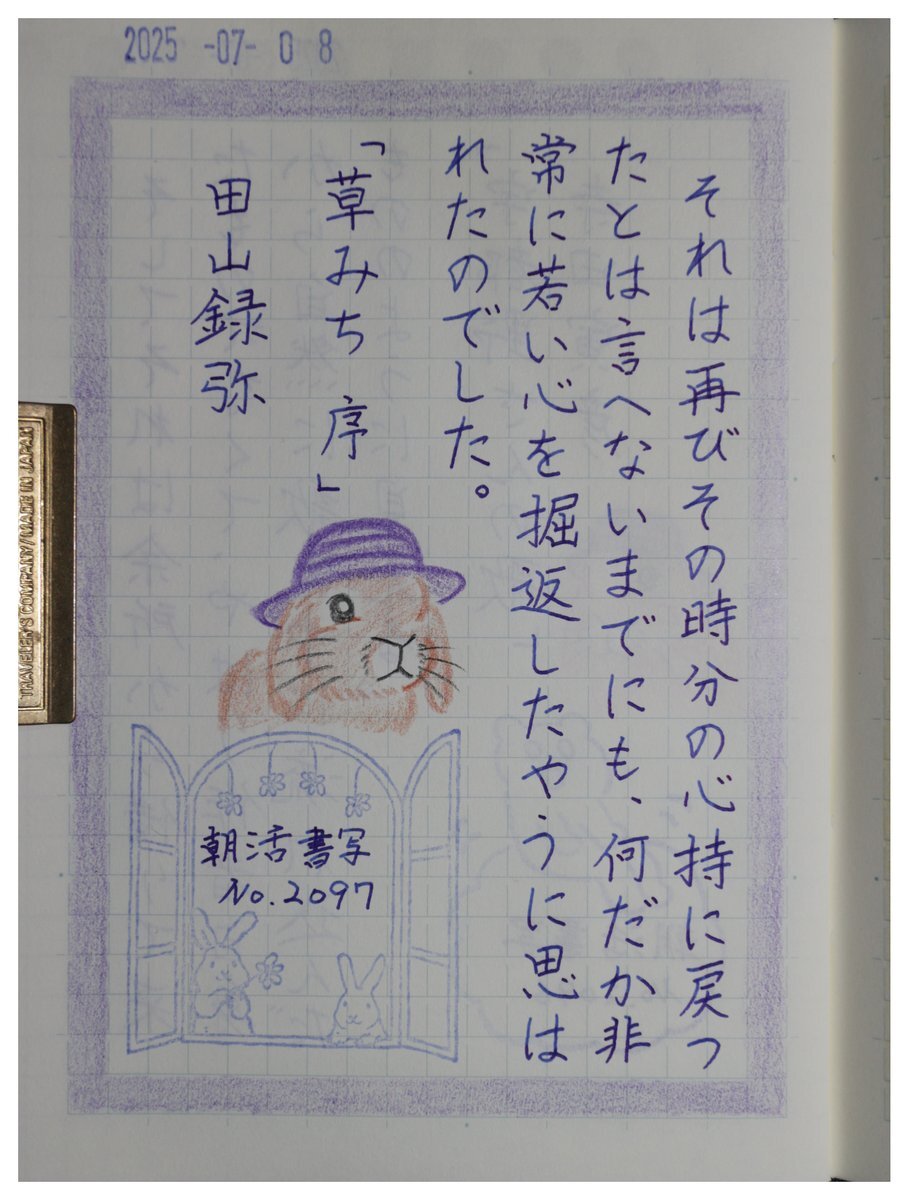 2025 -07- 08
それは再びその時分の心持に戻つ
たとは言へないまでにも、何だか非
常に若い心を掘返したやうに思は
れたのでした。
「草みち 序」
田山録弥
朝活書写
No.2097
TRAVELER'S COMPANY/MADE IN JAPAN